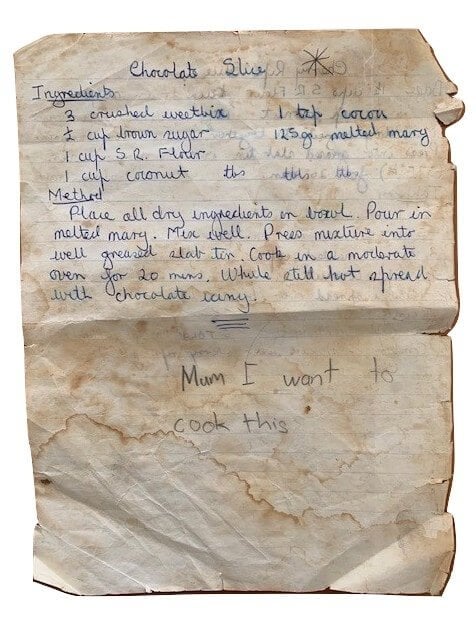 Chocolate Slice
Ingredients
3 crushed weetbix 1 tsp cocoa
½ cup brown sugar 125gs melted marg
1 cup S.R. Flour
1 cup coconut
Method
Place all dry ingredients in bowl. Pour in
melted marg. Mix well. Press mixture into
well greased slab tin. Cook in a moderate
oven for 20 mins. While still hot spread
with chocolate icing.
Mum I want to
cook this